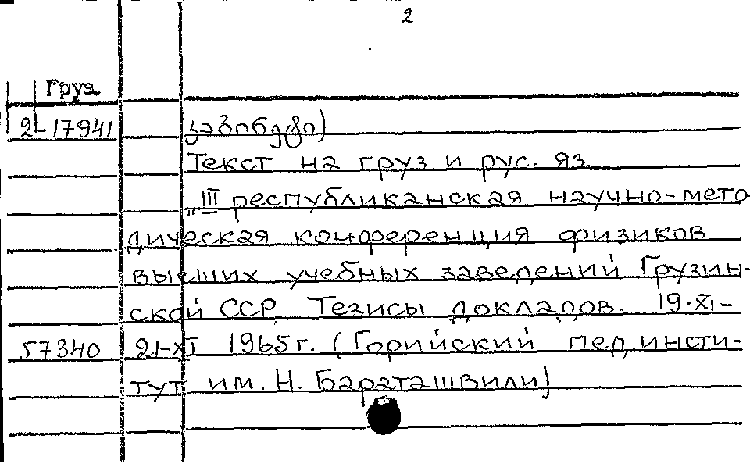 2
Груз
2-17941
Текст на груз и рус. яз
„III республиканская научно-мето
дическая конференция физиков
высших учебных заведений Грузин-
ской ССР. Тезисы докладов. 19.XI-
57340 21-XI 1965г. (Горийский пед. инсти-
тут им. Н. Бараташвили)